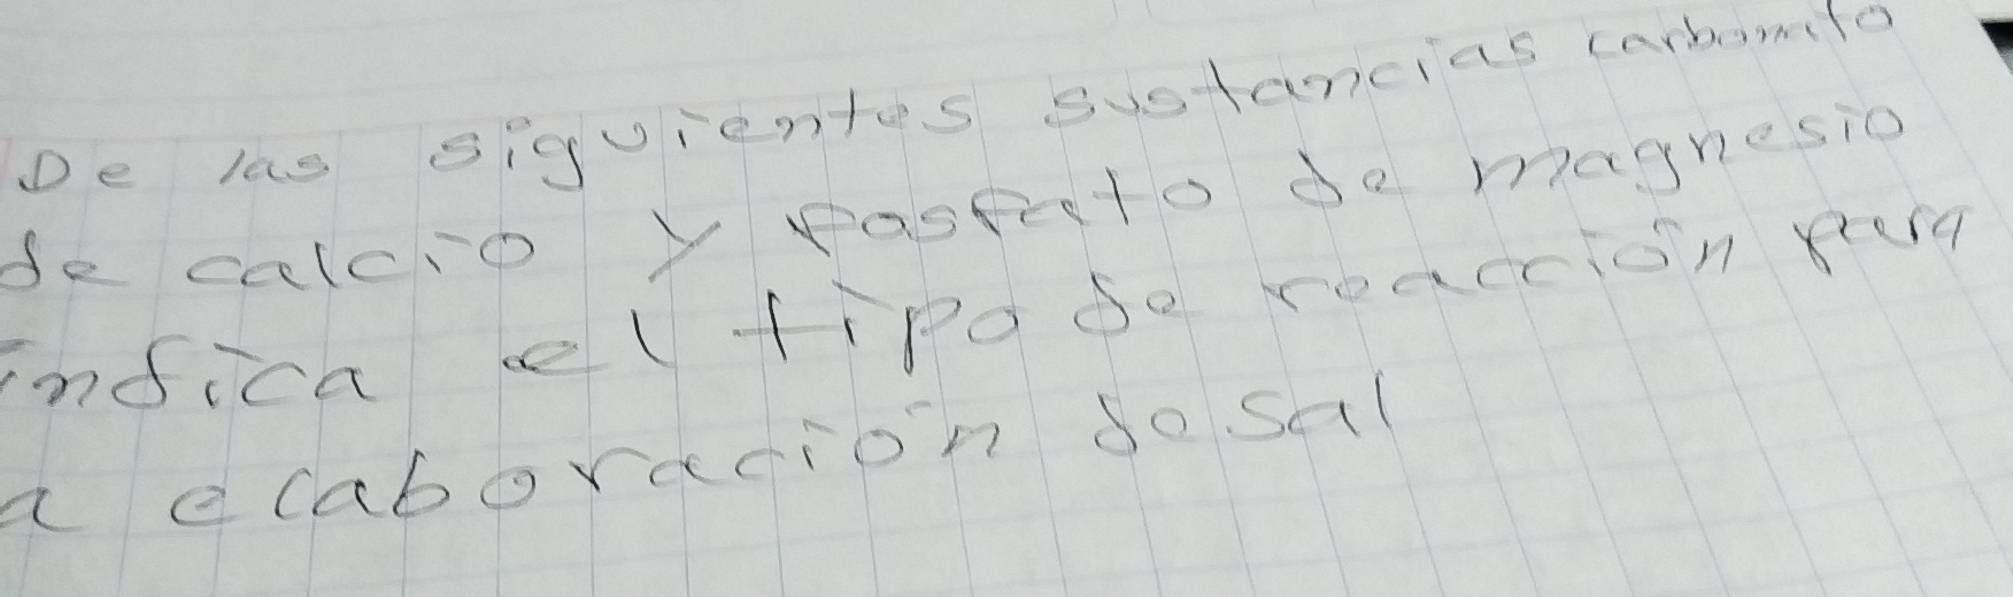 De las siguientes sustancias carbonato
de calcio y fosfato de magnesio
indica el tipo de reacción para
a elaboración de sal